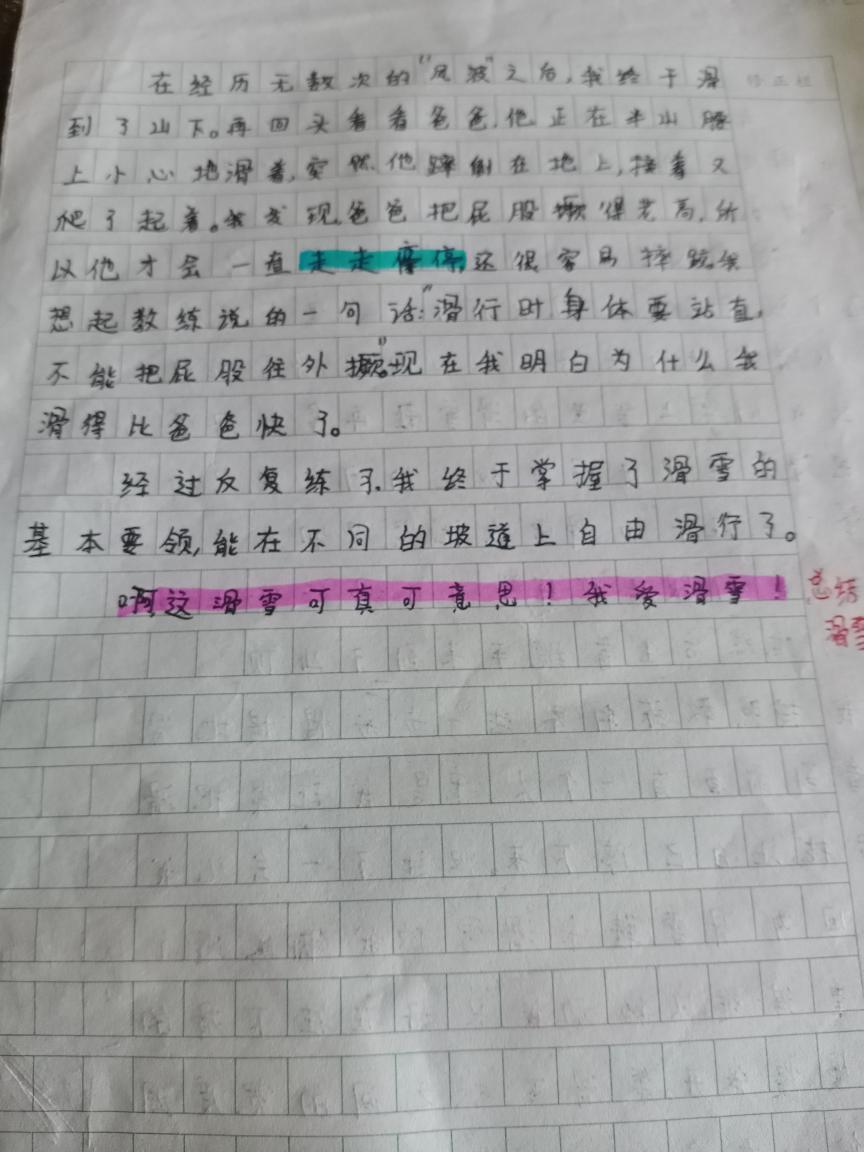 在经历无数次的"风波"之后,我终于滑
修正栏
到了山下。再回头看看爸爸,他正在半山腰
上小心地滑着,突然他蹿倒在地上,接着又
爬了起着。我发现,爸爸把屁股撅得老高,所
以他才会一直走走停停,还很容易摔跤。我
想起教练说的一句话:"滑行时身体要站直,
不能把屁股往外撅。"现在我明白为什么我
滑得比爸爸快了。
经过反复练习,我终于掌握了滑雪的
基本要领,能在不同的坡道上自由滑行了。
啊这滑雪可真可意思!我爱滑雪!
总结
滑雪